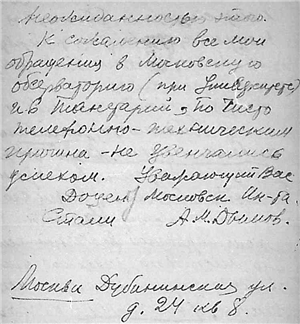 неожиданностью этого.
К сожалению все мои
обращения в Московскую
обсерваторию (при Университете)
и в Планетарий, по чисто
телефонно-техническим
причина - не увенчались
успехом. Уважающий Вас
Доцент Московск. Ин-та
Стали А.М. Дымов.
Москва Дубининская ул.
д. 24 кв 8.